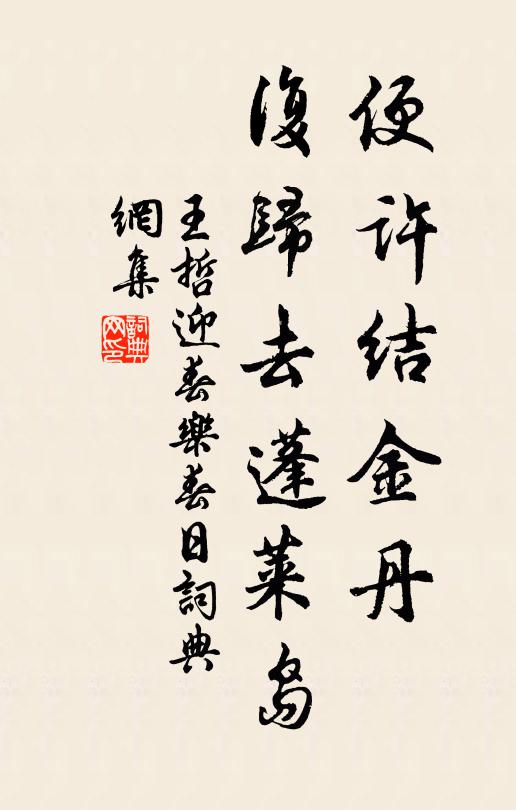 便许结金丹
復歸去蓬萊島
王哲迎春樂春日詞典
網集
詞典网印